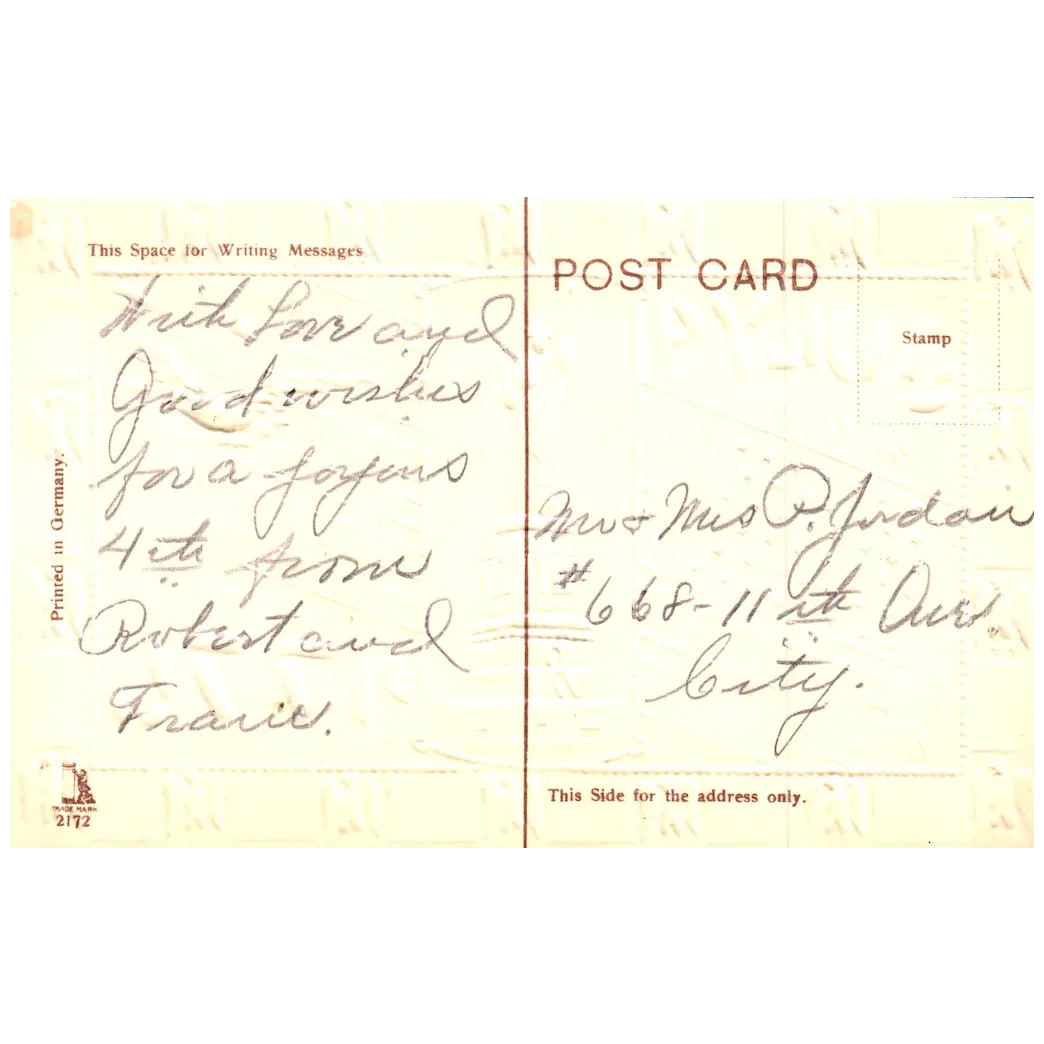 This Space for Writing Messages
With Love and
Good wishes
for a joyous
4th from
Robert and
Printed in Germany.
TRADE MARK
2172
POST CARD
Stamp
Mr & Mrs P. Jordan
#668-11th Ave
City.
This Side for the address only.